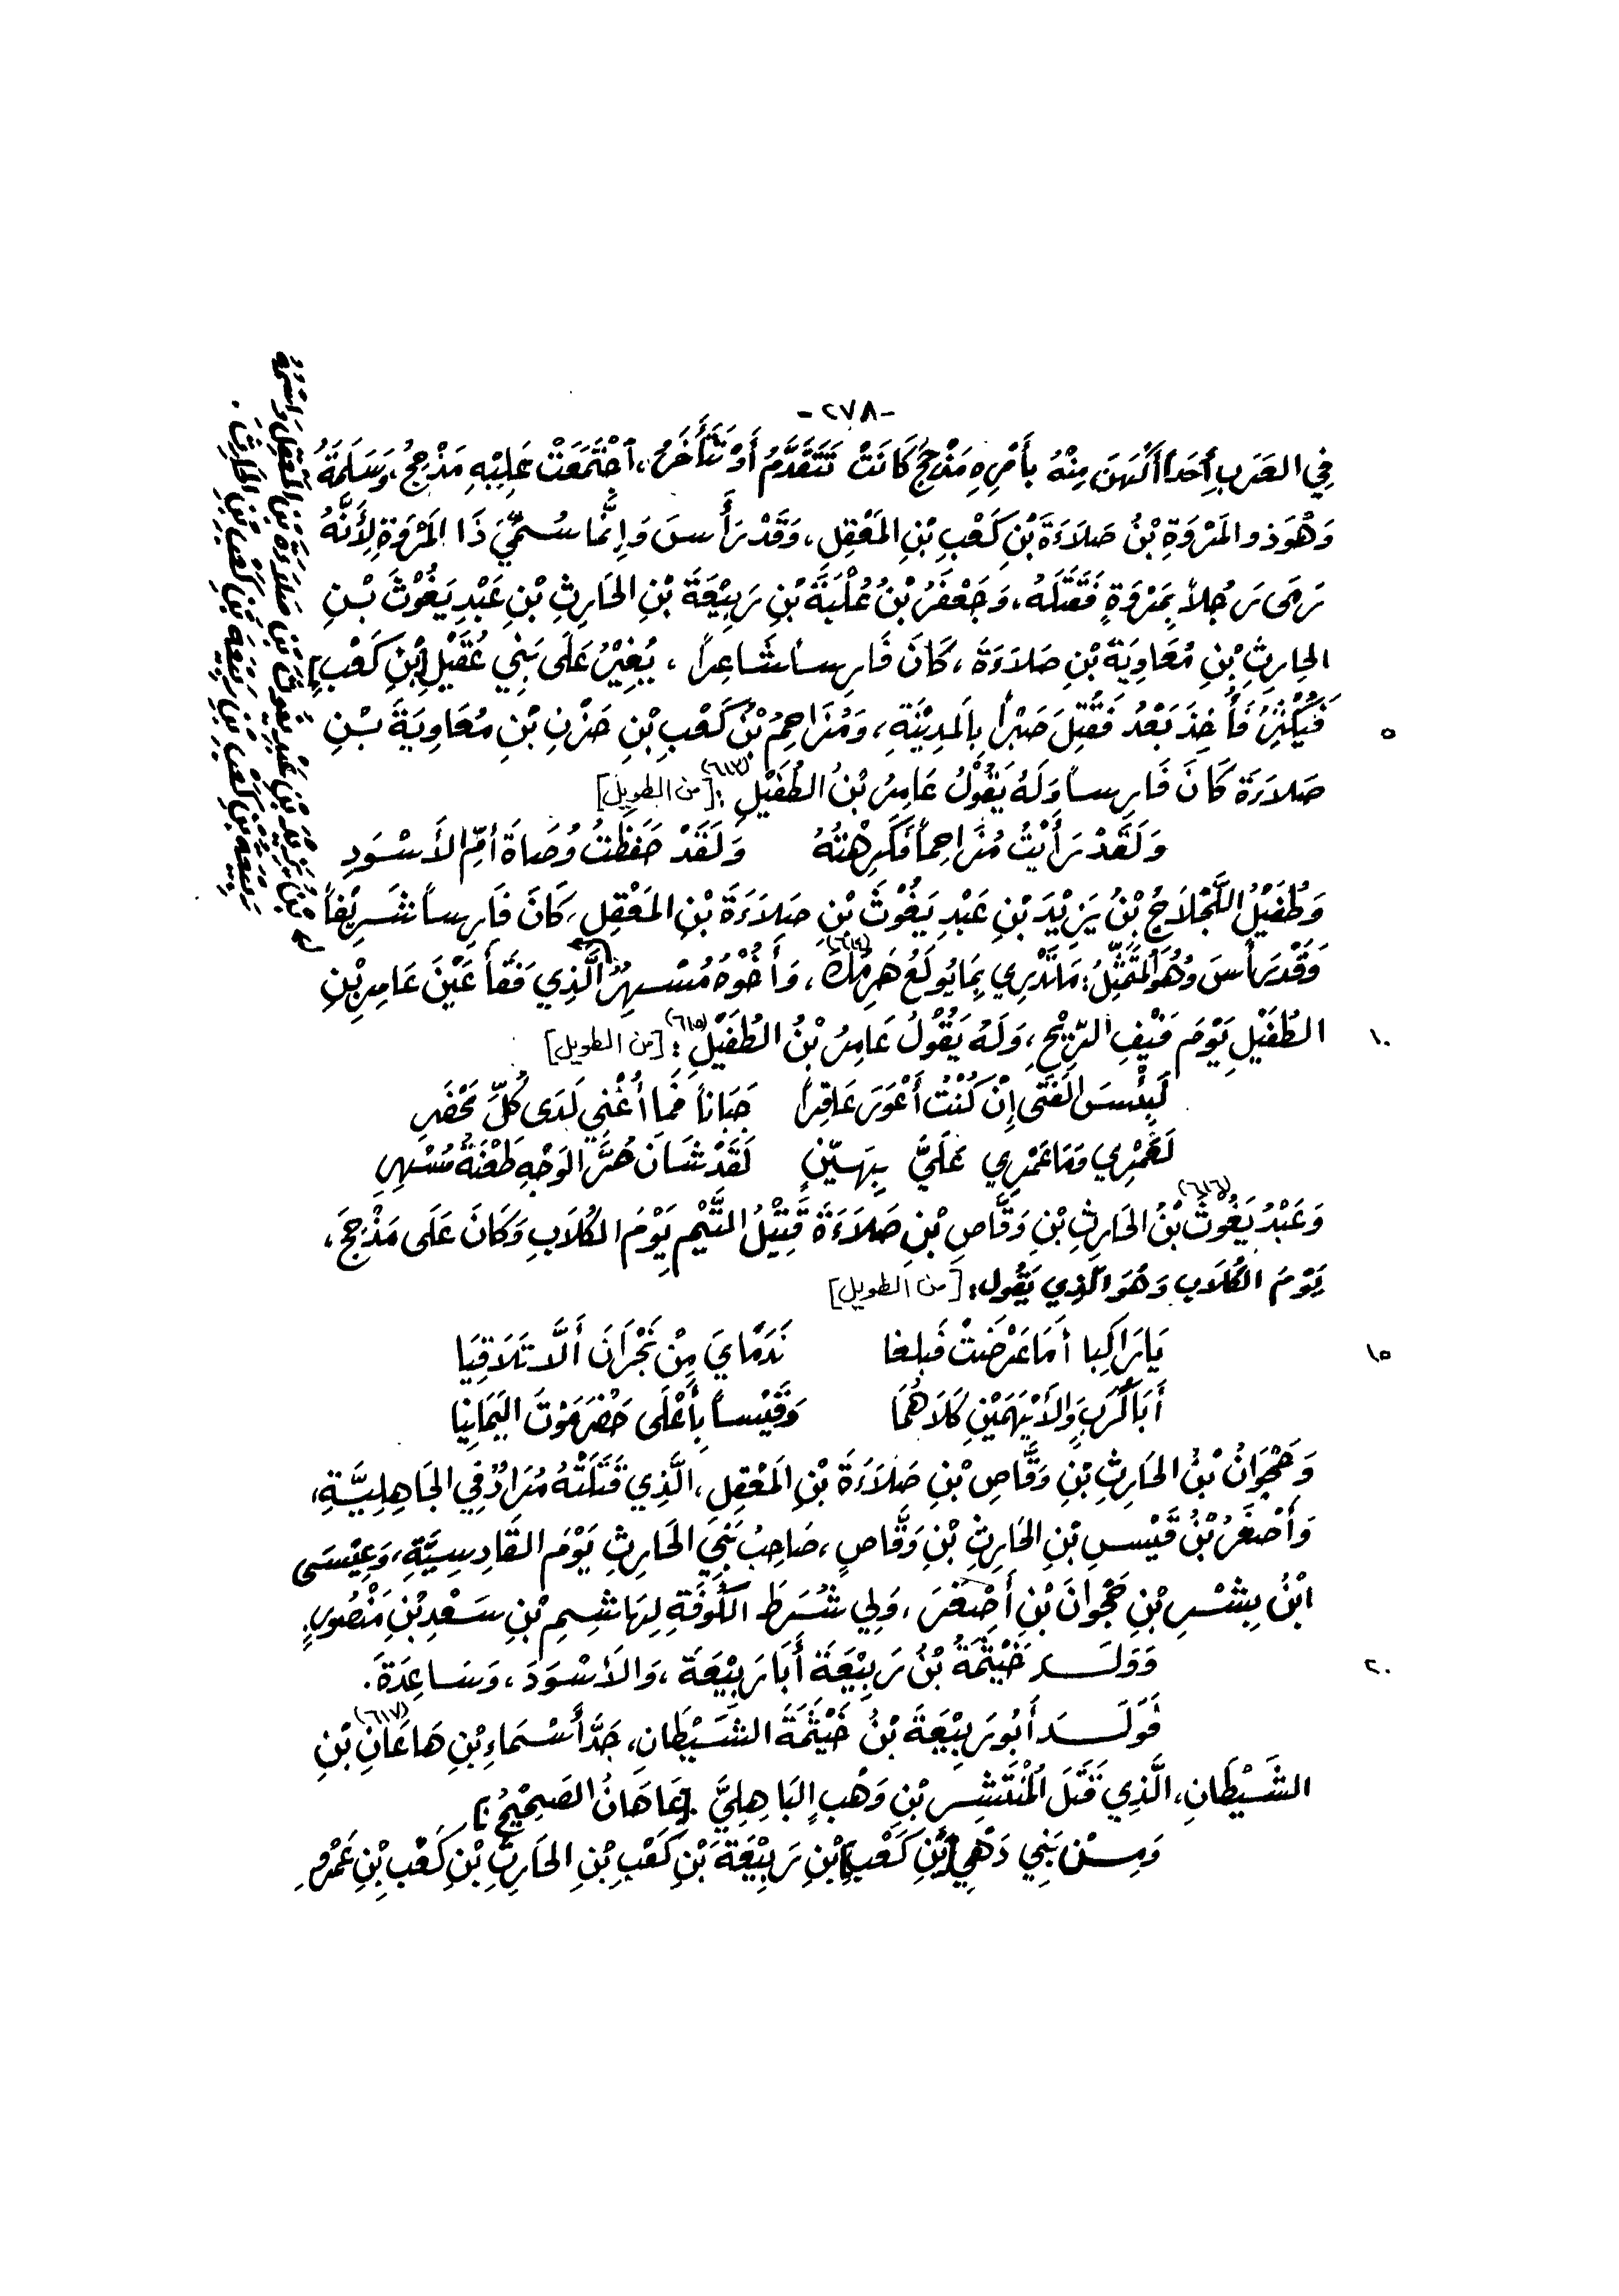 -٢٧٨-
فِي العَرَبِ أَحَداً أَكْهَنَ مِنْهُ بِأَمْرِهِ مَذْحِجُ كَانَتْ تَتَقَدَّمُ أَوْ تَتَأَخَّرُ، اجْتَمَعَتْ عَلِيْهِ مَذْحِجُ، وَسَلَمَةُ
وَهُوَ ذو المَرْوَةِ بْنُ صَلَاَءَةَ بْنِ كَعْبِ بْنِ المَعْقِلِ، وَقَدْ رَأَسَ وَإنَّما سُمِّيَ ذَا المَرْوَةِ لِأَنَّهُ
رَمَى رَجُلاً بِمَرْوَةٍ فَقَتَلَهُ، وَجَعْفَرُ بْنُ عُلْبَةَ بْنِ رَبِيْعَةَ بْنِ الحَارِثِ بْنِ عَبْدِ يَغُوْثَ بْنِ
الحارِثِ بْنِ مُعَاوِيَةَ بْنِ صَلاَءَةَ، كَانَ فَارِساً شَاعِراً، يُغِيْرُ عَلَى بَنِي عُقَيْلِ [بْنِ كَعْبٍ]
فَيُكْثِرُ فَأُخِذَ بَعْدُ فَقُتِلَ صَبْراً بِالمَدِيْنَةِ، وَمُزَاحِمُ بْنُ كَعْبِ بْنِ حَزْنِ بْنِ مُعَاوِيَةَ بْنِ ٥
صَلاَءَةَ كَانَ فَارِساً وَلَهُ يَقُوْلُ عَامِرُ بْنُ الطُّفَيْلِ (٦١٣): [من الطويل]
وَلَقَدْ رَأَيْتُ مُزَاحِماً فَكَرِهْتُهُ وَلَقَدْ حَفِظْتُ وُصَاةَ أُمِّ الأَسْوَدِ
وَطُفَيْلُ اللَّجْلَاجُ بْنُ يَزِيْدَ بْنِ عَبْدِ يَغُوْثَ بْنِ صَلَاَءَةَ بْنِ المَعْقِلِ، كَانَ فَارِساً شَرِيْفاً
وَقَدْ رَأَسَ وَهُوَ المُتَمَثِّلُ: مَا تَدْرِي بِمَا يُولَعُ هَرِمُكَ (٦١٤)، وَأَخُوْهُ مُسْهِرٌ الَّذِي فَقَأَ عَيْنَ عَامِرِ بْنِ
الطُّفَيْلِ يَوْمَ فَيْفِ الرِّيْحِ، وَلَهُ يَقُوْلُ عَامِرُ بْنُ الطُّفَيْلِ (٦١٥): [من الطويل] ١٠
لَبِئْسَ الفَتَى إِنْ كُنْتُ أَعْوَرَ عَاقِراً جَبَاناً فَمَا أُغْنِي لَدَى كُلِّ مَحْضَرِ
لَعَمْرِي وَمَا عَمْرِي عَلَيَّ بِهَيِّنٍ لَقَدْ شَانَ حُرَّ الوَجْهِ طَعْنَةُ مُسْهِرِ
وَعَبْدُ يَغُوثَ (٦١٦) بْنُ الحَارِثِ بْنِ وَقَّاصِ بْنِ صَلَاَءَةَ قَتِيْلُ التَّيْمِ يَوْمَ الكُلَابِ وَكَانَ عَلَى مَذْحِجَ،
يَوْمَ الكُلَابِ وَهُوَ الَّذِي يَقُولُ: [من الطويل]
يَا رَاكِبا أَمَا عَرَضْتَ فَبلغا نَدَمَايَ مِنْ نَجْرَانَ أَلَّا تَلَاقِيَا ١٥
أَبَا كَرَبٍ وَالأَيْهَمَيْنِ كَلَاهُمَا وَقَيْساً بِأَعْلَى حَضْرَمَوْتَ اليَمَانِيَا
وَحَجْوَانُ بْنُ الحَارِثِ بْنِ وَقَّاصِ بْنِ صَلاَءَةَ بْنِ المَعْقِلِ، الَّذِي قَتَلَتْهُ مُرَادٌ فِي الجَاهِلِيَّةِ،
وَأَصْغَرُ بْنُ قَيْسِ بْنِ الحَارِثِ بْنِ وَقَّاصٍ، صَاحِبُ بَنِي الحَارِثِ يَوْمَ القَادِسِيَّةِ، وَعِيْسَى
ابْنُ بِشْرِ بْنِ حَجْوانَ بْنِ أَصْغَرَ، وَلِي شُرَطَ الكُوفَةِ لِهَاشِمِ بْنِ سَعْدِ بْنِ مَنْصُورٍ.
وَوَلَدَ خَيْثَمَةُ بْنُ رَبِيْعَةَ أَبَا رَبِيْعَةَ، وَالأَسْوَدَ، وَسَاعِدَةَ. ٢٠
فَوَلَدَ أَبُو رَبِيْعَةَ بْنُ خَيْثَمَةَ الشَّيْطَانِ، جَدَّ أَسْمَاءِ بْنِ هَاعَانِ (٦١٧) بْنِ
الشَّيْطَانِ، الَّذِي قَتَلَ المُنْتَشِرِ بْنِ وَهْبٍ البَاهِلِيَّ. [عَاهَانُ الصَحِيْحُ]
وَمِنْ بَنِي دَهْيِ [بْنِ كَعْبٍ] بْنِ رَبِيْعَةَ بْنِ كَعْبِ بْنِ الحَارِثِ بْنِ كَعْبِ بْنِ عَمْرِو
بْنُ يَزِيْدَ بْنِ عَبْدِ يَغُوثَ بْنِ صَلَاءَةَ بْنِ المَعْقِلِ وَاسْمُهُ
رَبِيْعَةُ بْنُ كَعْبِ بْنِ رَبِيْعَةَ بْنِ كَعْبِ بْنِ الحَارِثِ.